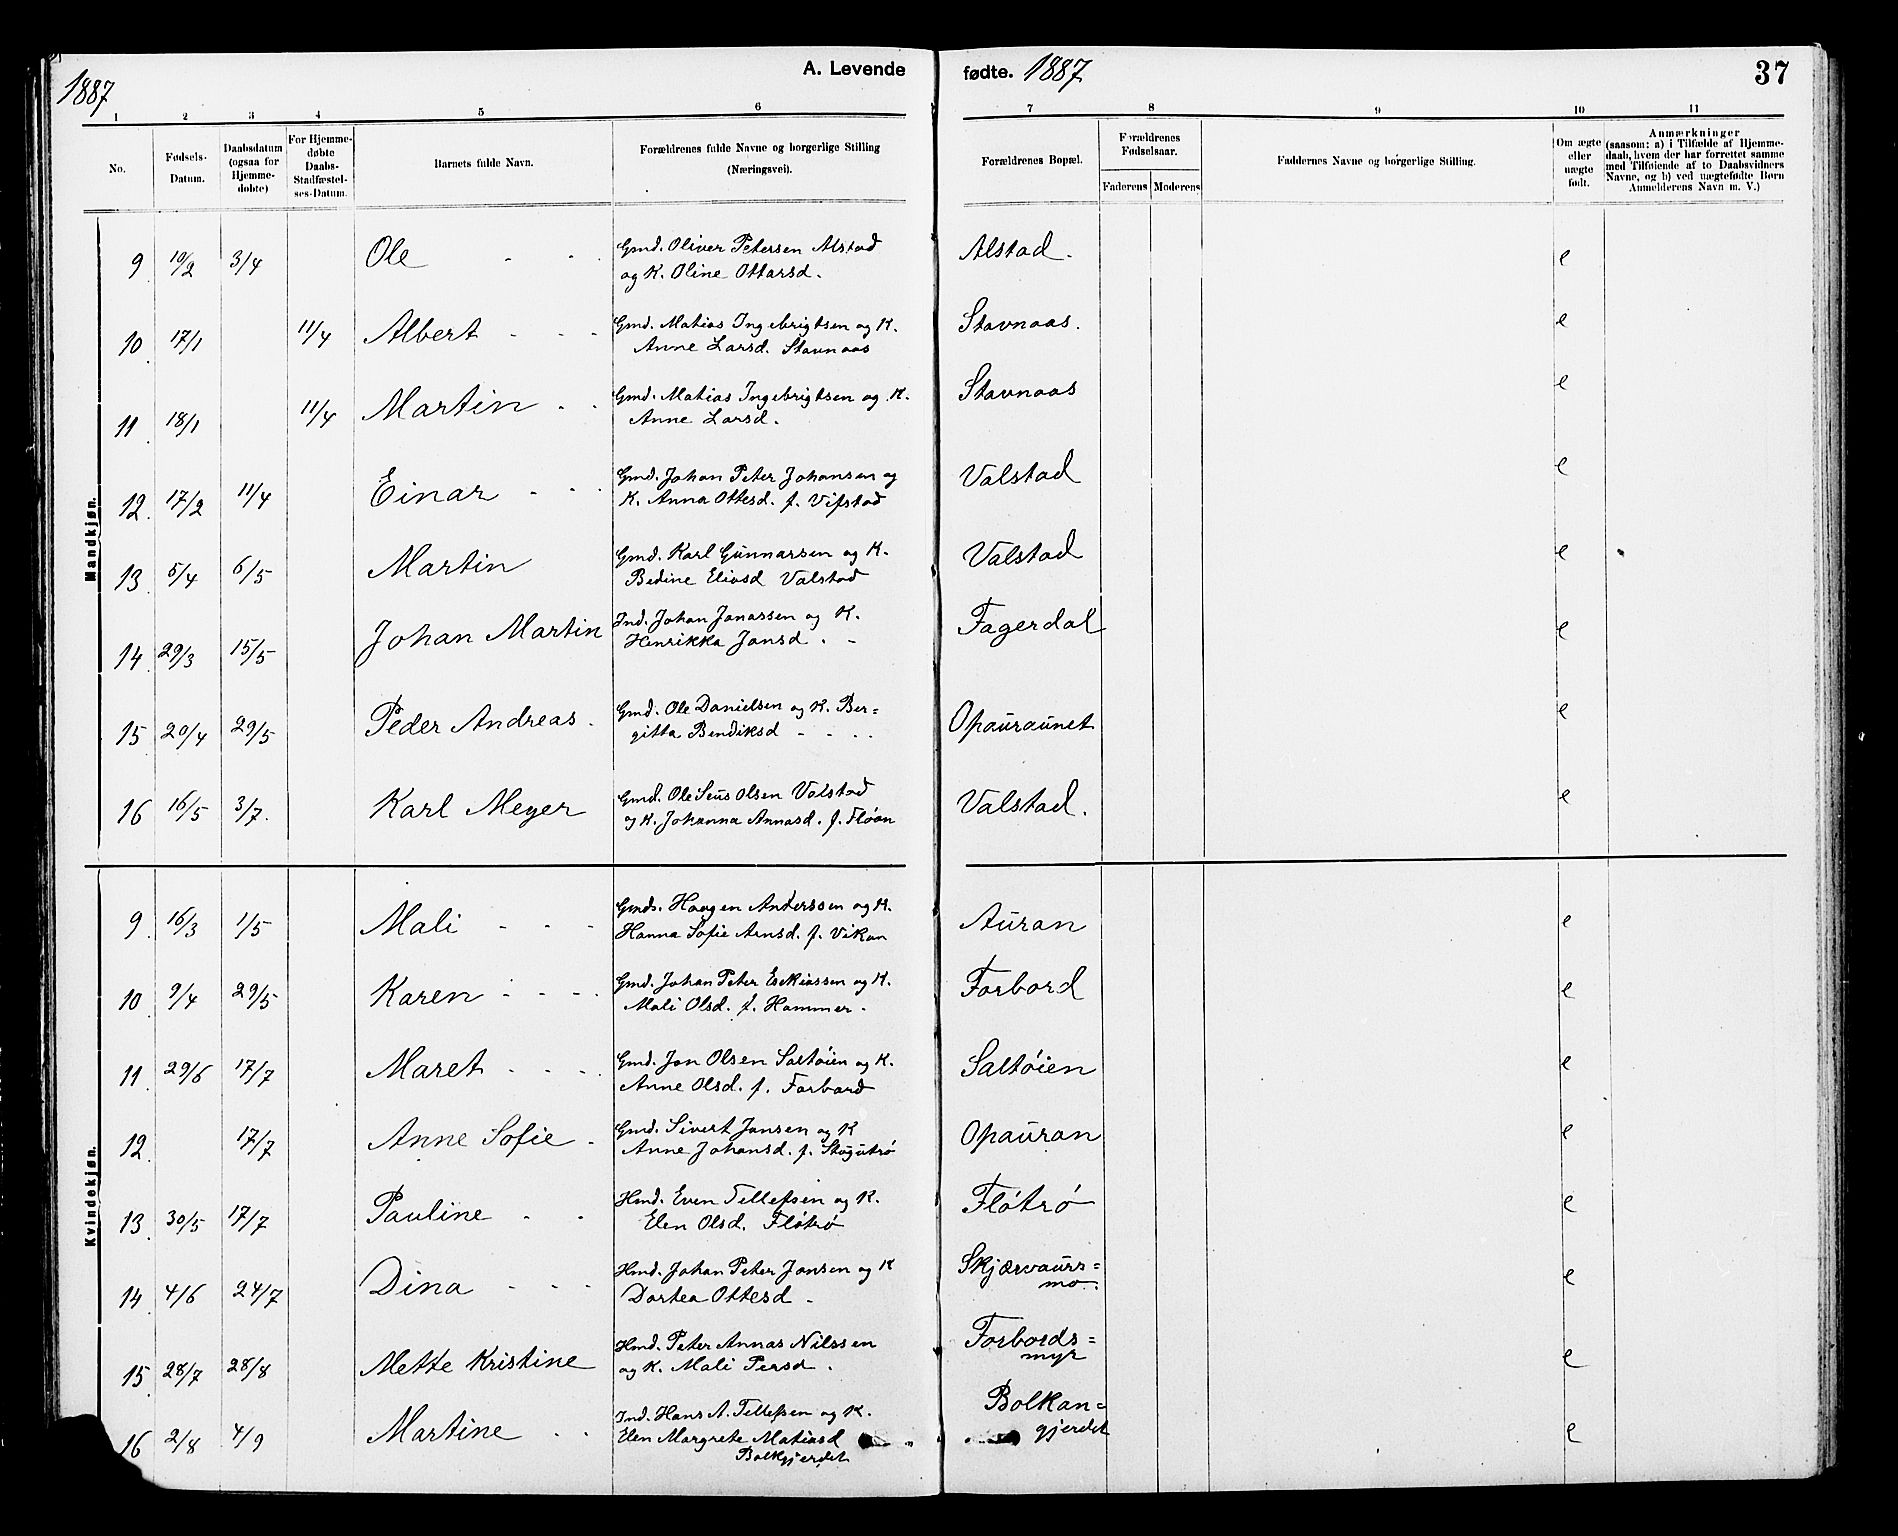 1887
A. Levende fødte. 1887
37
1 2 3 4 5 6 7 8 9 10 11
No.
Fødsels-Datum.
Daabsdatum (ogsaa for Hjemmedøbte)
For Hjemmedøbte Daabs-Stadfæstelses-Datum.
Barnets fulde Navn.
Forældrenes fulde Navne og borgerlige Stilling (Næringsvei).
Forældrenes Bopæl.
Forældrenes Fødselsaar.
Faderens Moderens
Faddernes Navne og borgerlige Stilling.
Om ægte eller uægte født.
Anmærkninger (saasom: a) i Tilfælde af Hjemmedaab, hvem der har forrettet samme med Tilføiende af to Daabsvidners Navne, og b) ved uægtefødte Børn Anmelderens Navn m. V.)
Mandkjøn.
9 10/2 3/4 Ole Gmd. Oliver Petersen Alstad Alstad. e
og K. Oline Ottarsd.
10 17/1 11/4 Albert Gmd. Matias Ingebrigtsen og K. Stavnaas. e
Anne Larsd. Stavnaas
11 18/1 11/4 Martin Gmd. Matias Ingebrigtsen og K. Stavnaas e
Anne Larsd.
12 17/2 11/4 Einar Gmd. Johan Peter Johansen og Valstad e
K. Anna Ottesd. f. Vifstad
13 5/4 6/5 Martin Gmd. Karl Gunnarsen og K. Valstad e
Bedine Eliasd Valstad
14 29/3 15/5 Johan Martin Ind. Johan Jonassen og K. Fagerdal e
Henrikka Jonsd.
15 20/4 29/5 Peder Andreas. Gmd. Ole Danielsen og K. Ber= Opauraunet e
gitta Bendiksd
16 16/5 3/7. Karl Meyer Gmd. Ole Seus Olsen Valstad Valstad. e
og K. Johanna Annasd. f. Fløan
Kvindekjøn.
9 16/3 1/5 Mali Gmds. Haagen Anderssen og K. Auran e
Hanna Sofie Arnsd. f. Vikan
10 9/4 29/5 Karen Gmd. Johan Peter Esekiassen og K. Forbord e
Mali Olsd. f. Hammer.
11 29/6 17/7 Maret Gmd. Jon Olsen Saltøien og K. Saltøien e
Anne Olsd. f. Forbord
12 17/7 Anne Sofie Gmd. Sivert Jansen og K Opauran e
Anne Johansd. f. Stugutrø
13 30/5 17/7 Pauline Hmd. Even Tellefsen og K. Fløtrø e
Elen Olsd. Fløtrø
14 4/6 24/7 Dina Hmd. Johan Peter Jonsen og K Skjærvaurs= e
Dortea Ottesd. mo.
15 28/7 28/8 Mette Kristine Hmd. Peter Annas Nilssen Forbords= e
og K. Mali Persd. myr
16 2/8 4/9 Martine Ind. Hans A. Tellefsen og K. Bolkan= e
Elen Margrete Matiasd gjerdet
Bolkgjerdet